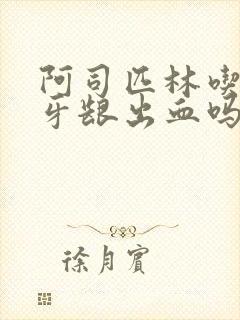 阿司匹林喫
牙龈出血吗
徐月宾